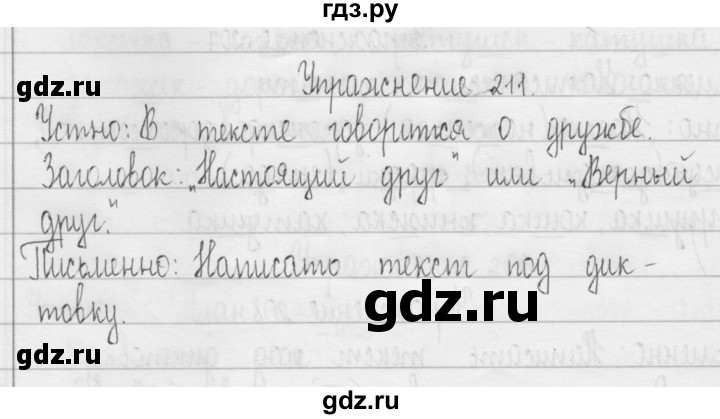 гдз.ру
Упражнение 211.
gdz.ru
gdz.ru
Устно: В тексте говорится о дружбе.
Заголовок: „Настоящий друг" или „Верный
друг".
gdz.ru
Письменно: Написать текст под дик-
товку.
gdz.ru
gdz.ru